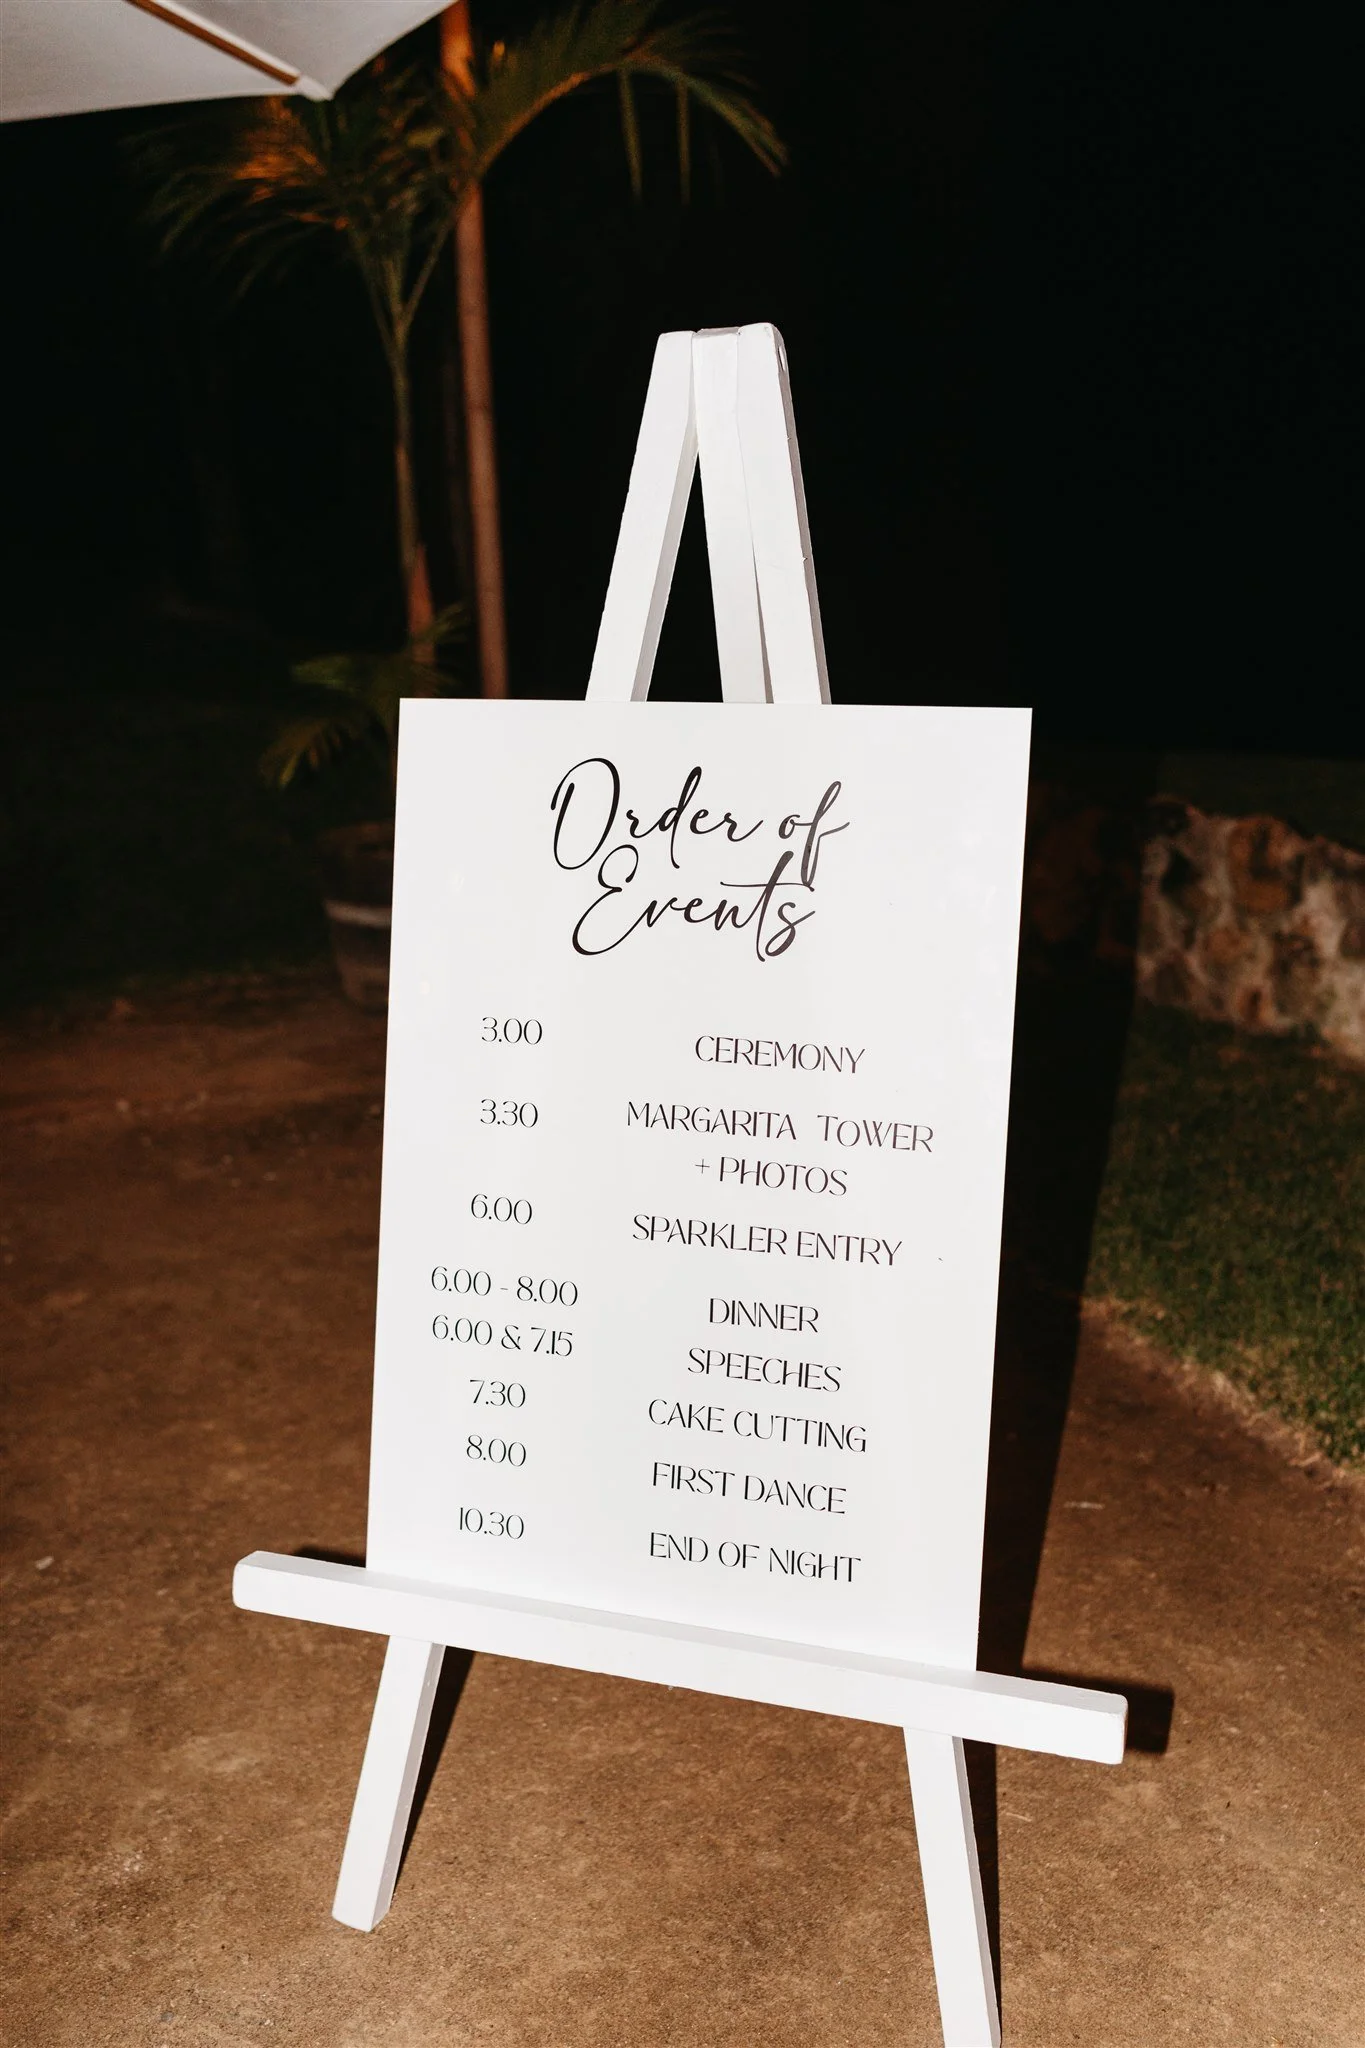 Order of
Events
3.00 CEREMONY
3.30 MARGARITA TOWER
+ PHOTOS
6.00 SPARKLER ENTRY
6.00 - 8.00 DINNER
6.00 & 7.15 SPEECHES
7.30 CAKE CUTTING
8.00 FIRST DANCE
10.30 END OF NIGHT